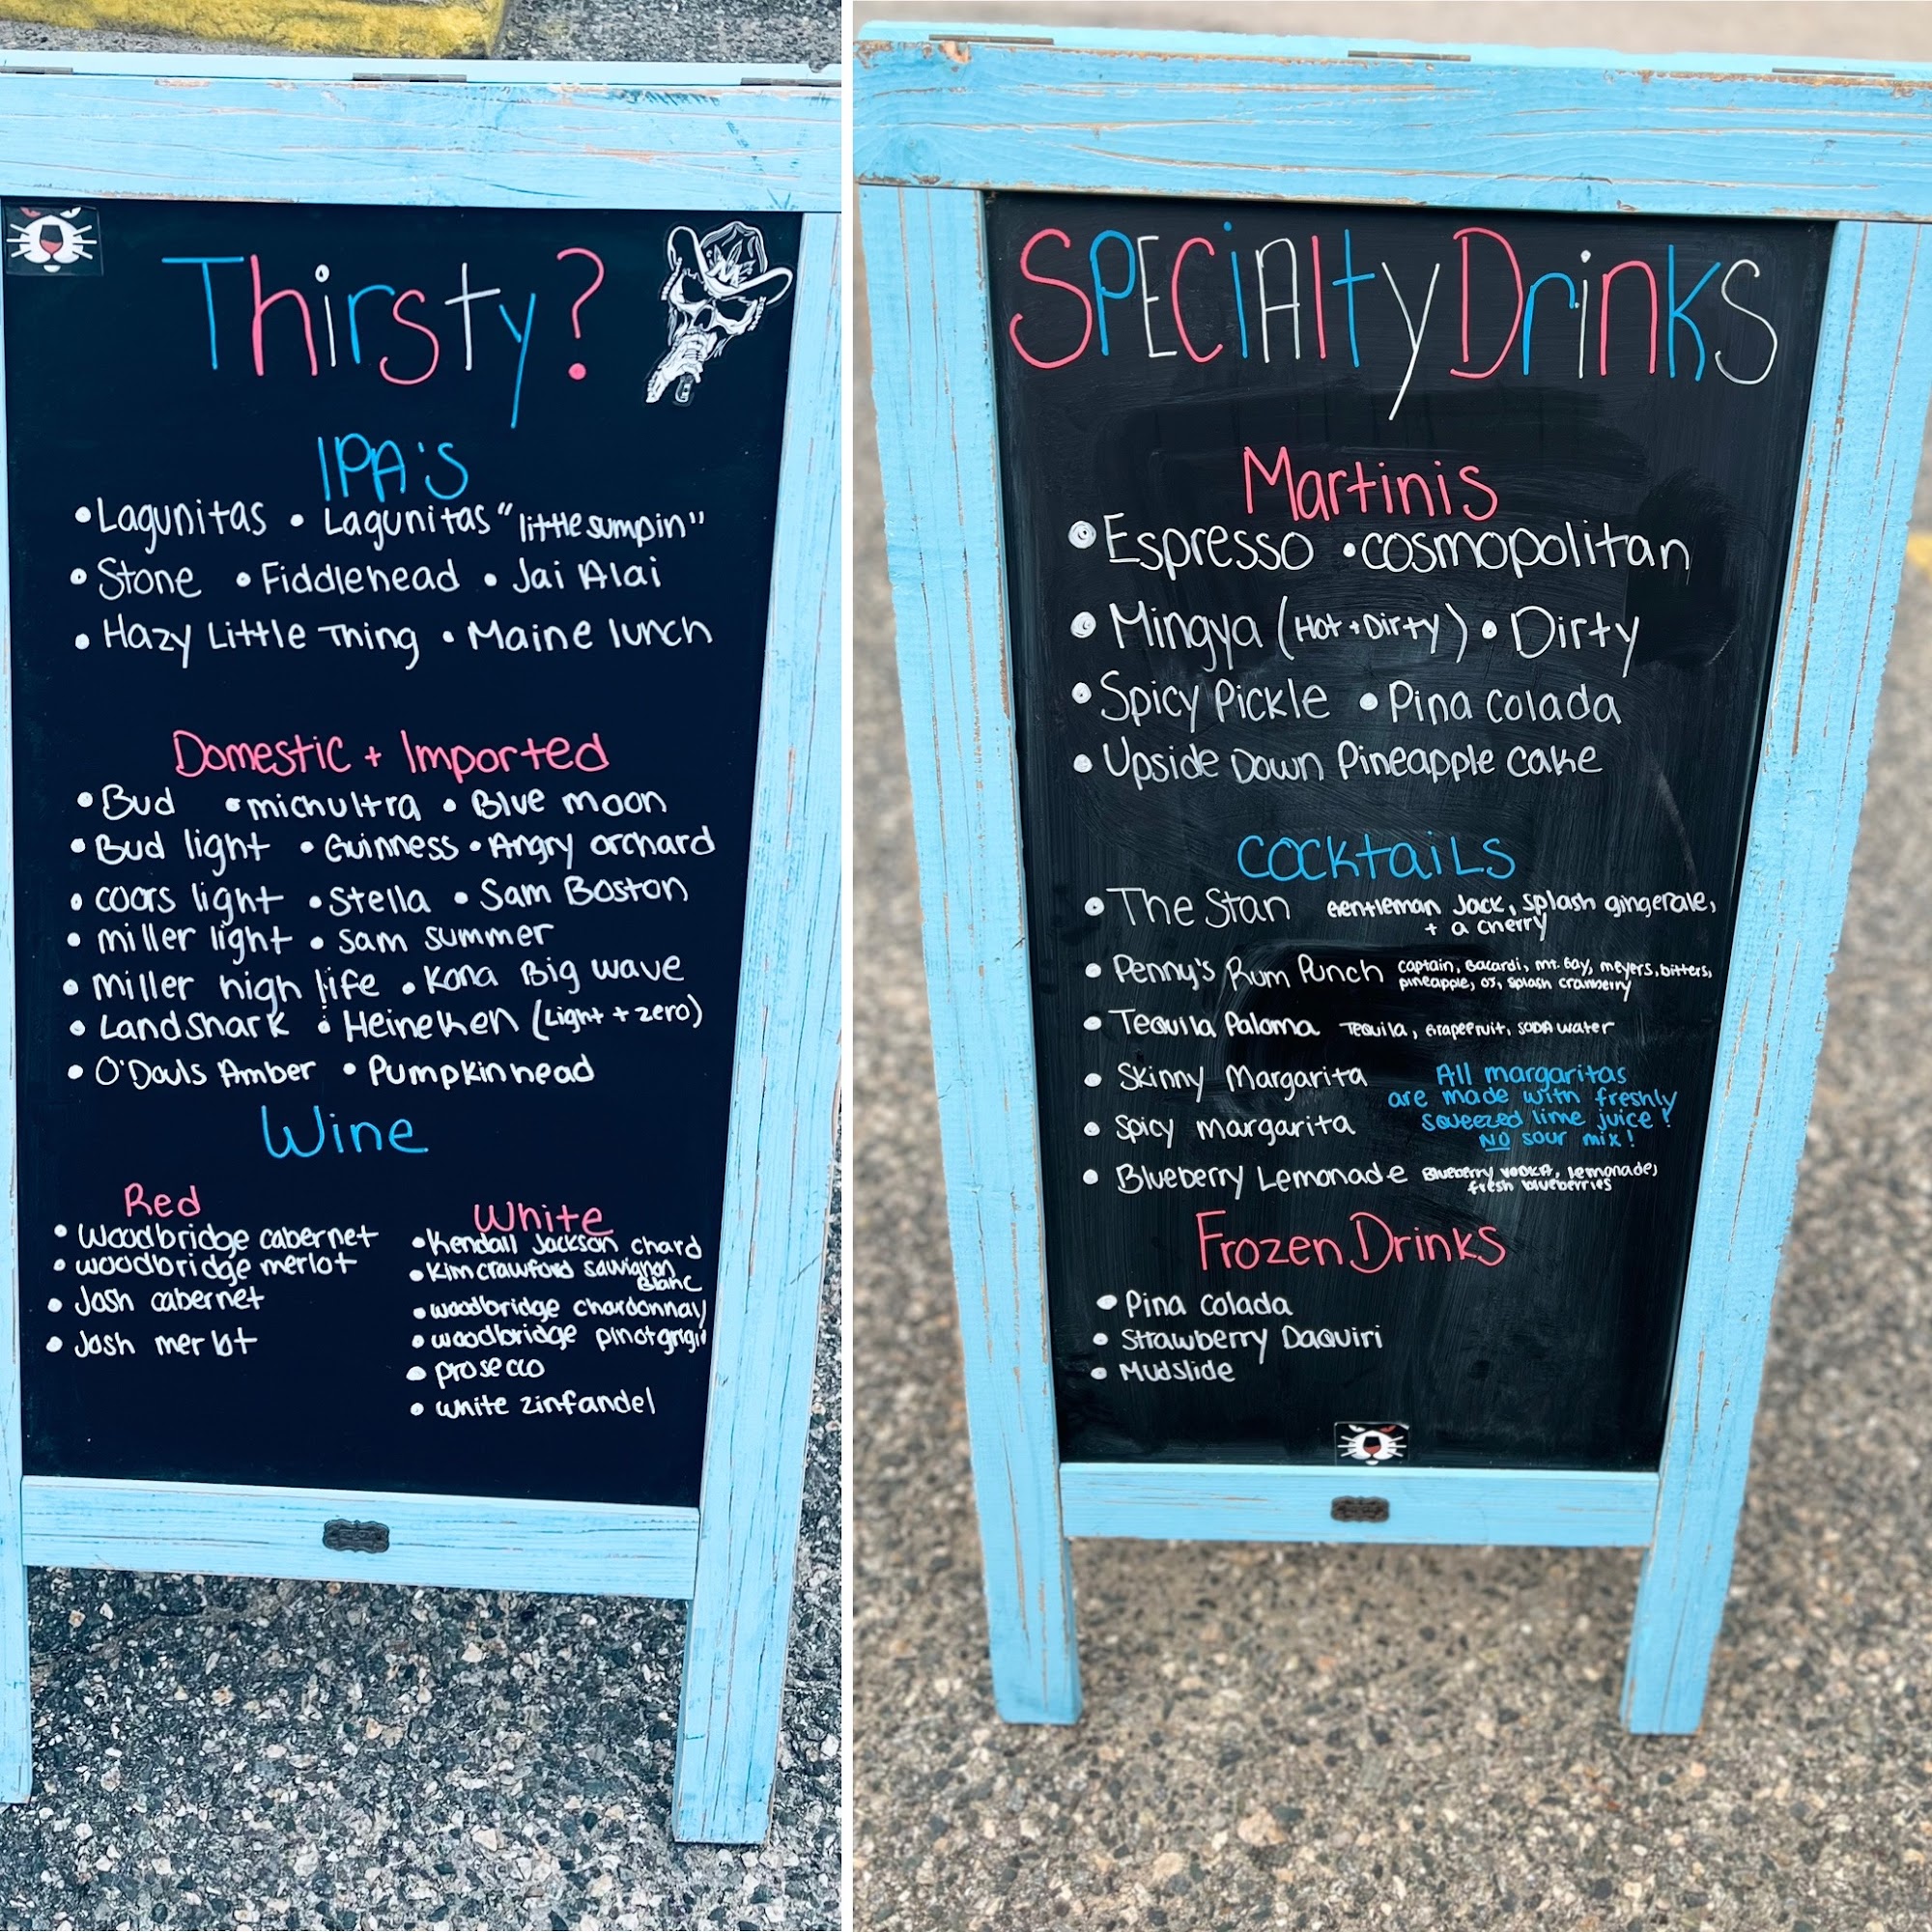 Thirsty?
IPA's
• Lagunitas • Lagunitas "little sumpin"
• Stone • Fiddlehead • Jai Alai
• Hazy Little Thing • Maine lunch
Domestic + Imported
• Bud • michultra • Blue moon
• Bud light • Guinness • Angry orchard
• coors light • Stella • Sam Boston
• miller light • Sam summer
• miller high life • Kona Big wave
• Landshark • Heineken (Light + zero)
• O'Douls Amber • Pumpkinhead
Wine
Red
• Woodbridge cabernet
• woodbridge merlot
• Josh cabernet
• Josh merlot
White
• Kendall Jackson chard
• Kim crawford sauvignon
Blanc
• woodbridge chardonnay
• woodbridge pinot grigio
• prosecco
• white zinfandel
SPECiAltyDrinks
Martinis
• Espresso • cosmopolitan
• Mingya (Hot + Dirty) • Dirty
• Spicy Pickle • Pina colada
• Upside Down Pineapple cake
COCKtaiLs
• The Stan Gentleman Jack, splash gingerale,
+ a cherry
• Penny's Rum Punch captain, Bacardi, mt. Gay, meyers, bitters,
pineapple, OJ, splash cranberry
• Tequila Paloma Tequila, Grapefruit, soda water
• Skinny Margarita
• Spicy margarita
All margaritas
are made with freshly
squeezed lime juice!
NO sour mix!
• Blueberry Lemonade Blueberry vodka, lemonade,
fresh blueberries
Frozen Drinks
• Pina colada
• Strawberry Daquiri
• Mudslide